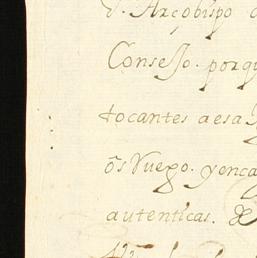 d. Arçobispo
Consejo. porq
tocantes a esa
õs Ruego. y enca
autenticas.